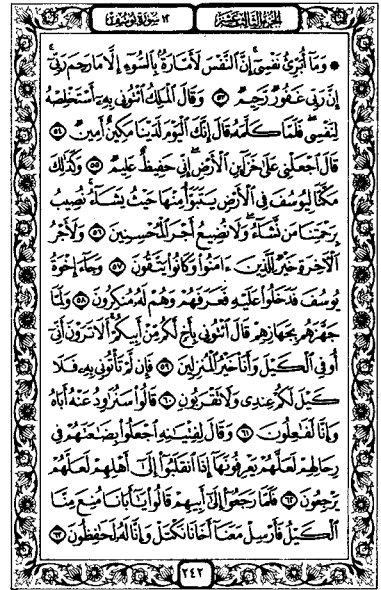 الجزء الثالث عشر
١٢ سورة يوسف
۞ وَمَآ أُبَرِّئُ نَفْسِىٓ ۚ إِنَّ ٱلنَّفْسَ لَأَمَّارَةٌۢ بِٱلسُّوٓءِ إِلَّا مَا رَحِمَ رَبِّىٓ ۚ
إِنَّ رَبِّى غَفُورٌ رَّحِيمٌ ٥٣ وَقَالَ ٱلْمَلِكُ ٱئْتُونِى بِهِۦٓ أَسْتَخْلِصْهُ
لِنَفْسِى ۖ فَلَمَّا كَلَّمَهُۥ قَالَ إِنَّكَ ٱلْيَوْمَ لَدَيْنَا مَكِينٌ أَمِينٌ ٥٤
قَالَ ٱجْعَلْنِى عَلَىٰ خَزَآئِنِ ٱلْأَرْضِ ۖ إِنِّى حَفِيظٌ عَلِيمٌ ٥٥ وَكَذَٰلِكَ
مَكَّنَّا لِيُوسُفَ فِى ٱلْأَرْضِ يَتَبَوَّأُ مِنْهَا حَيْثُ يَشَآءُ ۚ نُصِيبُ
بِرَحْمَتِنَا مَن نَّشَآءُ ۖ وَلَا نُضِيعُ أَجْرَ ٱلْمُحْسِنِينَ ٥٦ وَلَأَجْرُ
ٱلْـَٔاخِرَةِ خَيْرٌ لِّلَّذِينَ ءَامَنُوا۟ وَكَانُوا۟ يَتَّقُونَ ٥٧ وَجَآءَ إِخْوَةُ
يُوسُفَ فَدَخَلُوا۟ عَلَيْهِ فَعَرَفَهُمْ وَهُمْ لَهُۥ مُنكِرُونَ ٥٨ وَلَمَّا
جَهَّزَهُم بِجَهَازِهِمْ قَالَ ٱئْتُونِى بِأَخٍ لَّكُم مِّنْ أَبِيكُمْ ۚ أَلَا تَرَوْنَ أَنِّىٓ
أُوفِى ٱلْكَيْلَ وَأَنَا۠ خَيْرُ ٱلْمُنزِلِينَ ٥٩ فَإِن لَّمْ تَأْتُونِى بِهِۦ فَلَا
كَيْلَ لَكُمْ عِندِى وَلَا تَقْرَبُونِ ٦٠ قَالُوا۟ سَنُرَٰوِدُ عَنْهُ أَبَاهُ
وَإِنَّا لَفَٰعِلُونَ ٦١ وَقَالَ لِفِتْيَٰنِهِ ٱجْعَلُوا۟ بِضَٰعَتَهُمْ فِى
رِحَالِهِمْ لَعَلَّهُمْ يَعْرِفُونَهَآ إِذَا ٱنقَلَبُوٓا۟ إِلَىٰٓ أَهْلِهِمْ لَعَلَّهُمْ
يَرْجِعُونَ ٦٢ فَلَمَّا رَجَعُوٓا۟ إِلَىٰٓ أَبِيهِمْ قَالُوا۟ يَٰٓأَبَانَا مُنِعَ مِنَّا
ٱلْكَيْلُ فَأَرْسِلْ مَعَنَآ أَخَانَا نَكْتَلْ وَإِنَّا لَهُۥ لَحَٰفِظُونَ ٦٣
٢٤٢